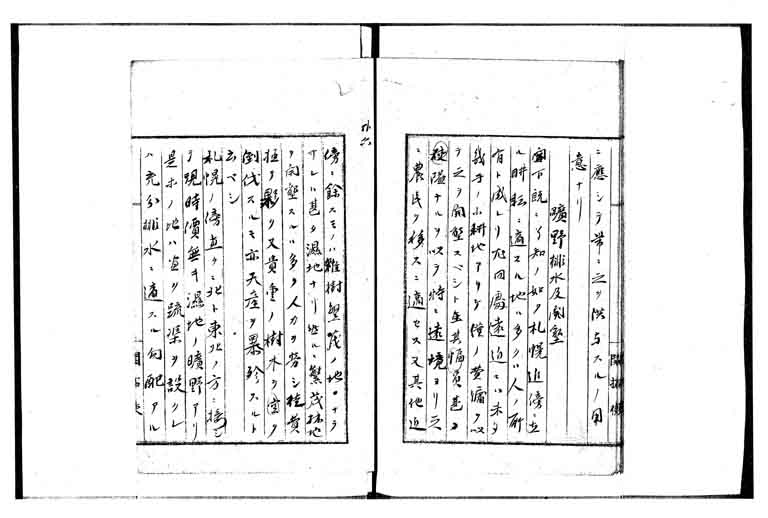 ニ應シテ常ニ之ヲ供与スルノ用
意ナリ
曠野排水及開墾
閣下既ニ了知ノ如ク札幌近傍ニ在
ル耕耘ニ適スル地ハ多クハ人ノ所
有ト成レリ尤回處近ニハ未タ
幾多ノ小耕地アリテ僅ノ費痛ヲ以
テ之ヲ開墾スベシト雖其幅員甚タ
狹隘ナルヲ以テ特ニ遠境ヨリ之
ニ農民ヲ移スニ適セス又其他近
傍ニ餘スモノハ雜樹繁茂ノ地ニナラ
サレハ甚タ濕地ナリ然ルニ繁茂林地
ヲ開墾スルハ多ク人力ヲ労シ経費
狂ヲ夥ク又貴重ノ樹木ヲ空ク
倒伐スルモ亦天産ヲ暴殄スルト
云ベシ
札幌ノ傍直クニ北ト東北ノ方ニ接シ
テ現時價無キ濕地ノ曠野アリ
是等ノ地ハ宜ク疏渠ヲ設クレ
ハ充分排水ニ適スル勾配アル